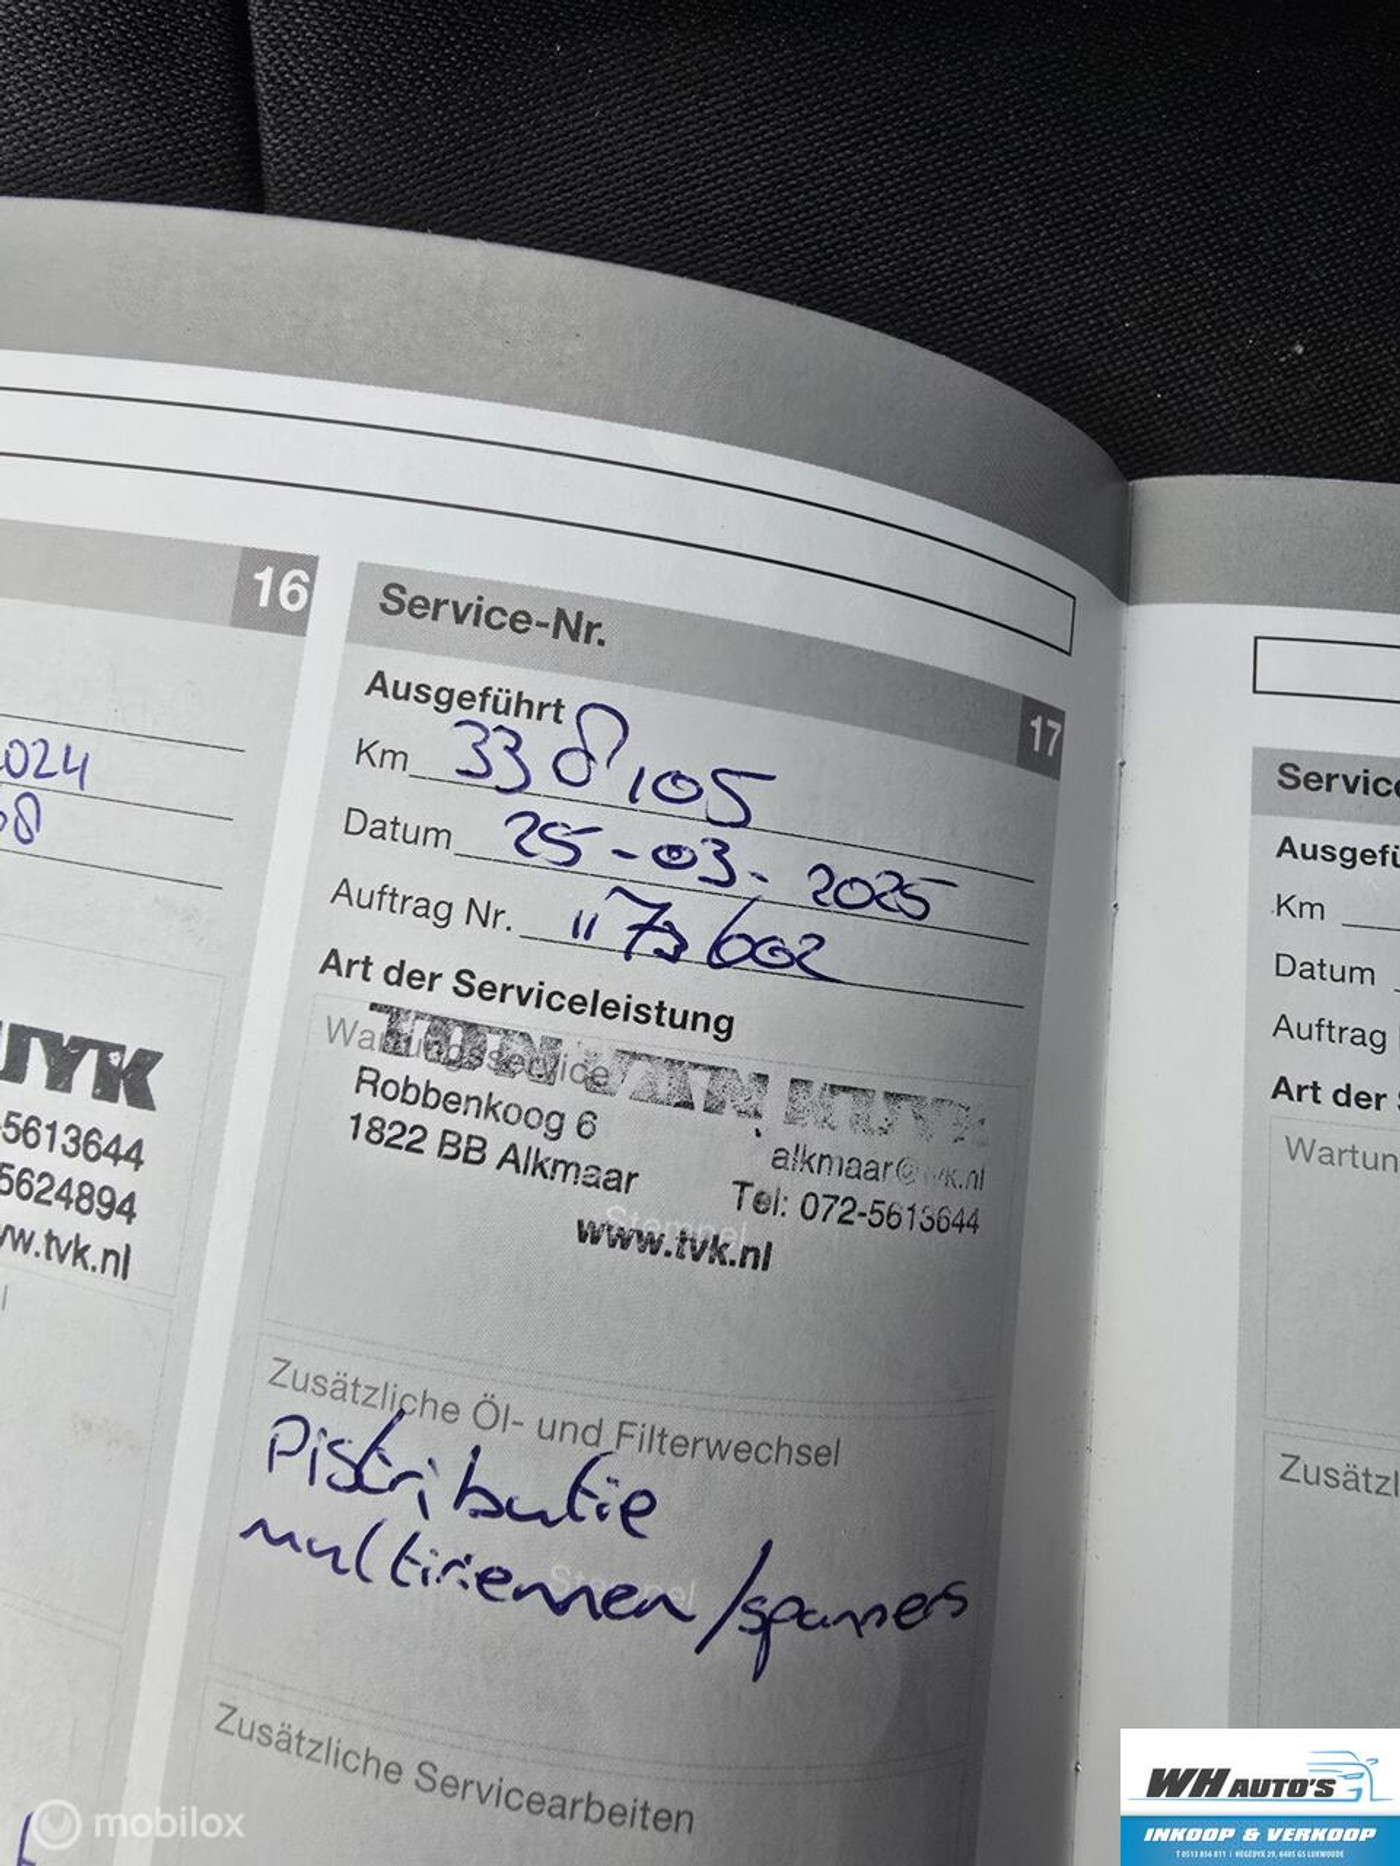 16
2024
68
UYK
-5613644
5624894
ww.tvk.nl
Service-Nr.
17
Ausgeführt
Km 338105
Datum 25-03-2025
Auftrag Nr.
Art der Serviceleistung
Wartungsservice
TON VAN KUYK
Robbenkoog 6
1822 BB Alkmaar
alkmaar@tvk.nl
Tel: 072-5613644
Stempel
www.tvk.nl
Zusätzliche Öl- und Filterwechsel
Distributie
multiriemen/spanners
Stempel
Zusätzliche Servicearbeiten
Service
Ausgefü
Km
Datum
Auftrag
Art der
Wartun
Zusätzl
mobilox
WH AUTO'S
INKOOP & VERKOOP
T 0513 856 811 | HEGEDYK 29, 8405 GS LUXWOUDE